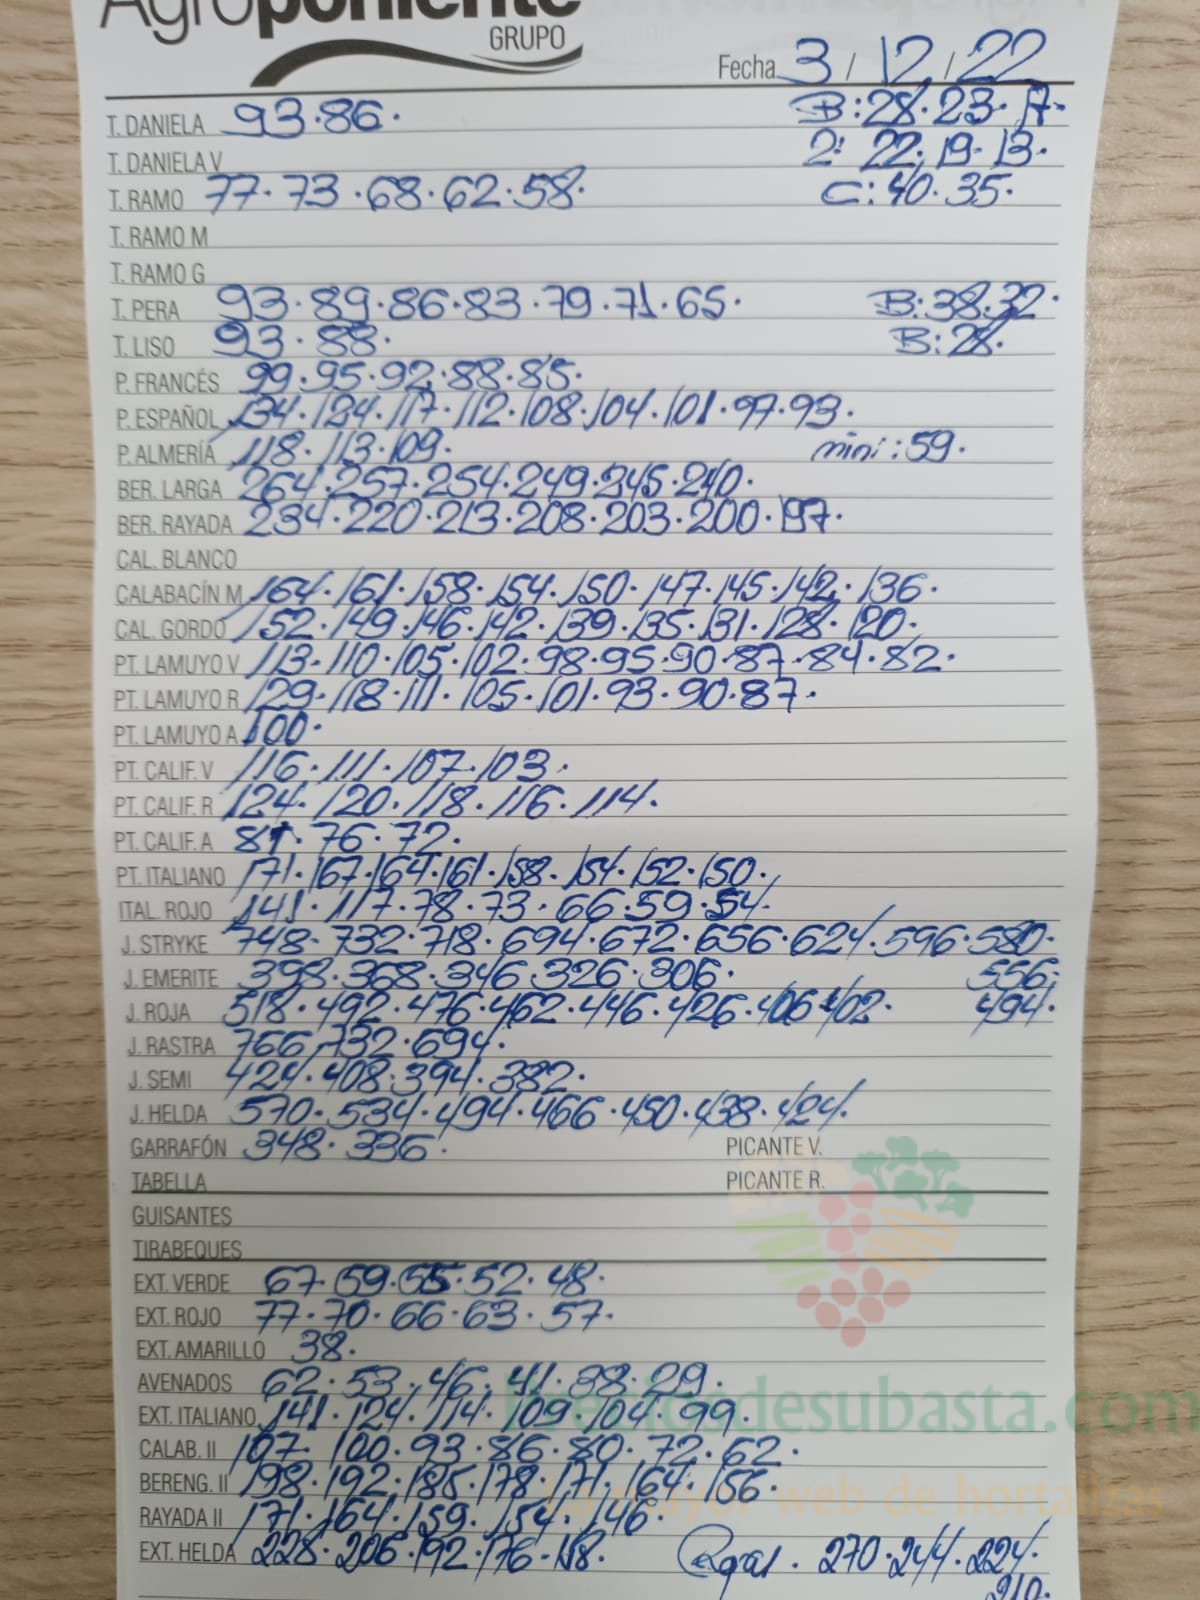 Agroponiente
GRUPO
Fecha 3 / 12 / 22
T. DANIELA 93·86· B:28·23·17·
T. DANIELA V 2: 22·19·13·
T. RAMO 77·73·68·62·58· C:40·35·
T. RAMO M
T. RAMO G
T. PERA 93·89·86·83·79·71·65· B:38·32·
T. LISO 93·88· B:28·
P. FRANCÉS 99·95·92·88·85·
P. ESPAÑOL 134·124·117·112·108·104·101·97·93·
P. ALMERÍA 118·113·109· mini:59·
BER. LARGA 264·257·254·249·245·240·
BER. RAYADA 234·220·213·208·203·200·197·
CAL. BLANCO
CALABACÍN M 164·161·158·154·150·147·145·142·136·
CAL. GORDO 152·149·146·142·139·135·131·128·120·
PT. LAMUYO V 113·110·105·102·98·95·90·87·84·82·
PT. LAMUYO R 129·118·111·105·101·93·90·87·
PT. LAMUYO A 100·
PT. CALIF. V 116·111·107·103·
PT. CALIF. R 124·120·118·116·114·
PT. CALIF. A 81·76·72·
PT. ITALIANO 171·167·164·161·158·154·152·150·
ITAL. ROJO 141·117·78·73·66·59·54·
J. STRYKE 748·732·718·694·672·656·624·596·580·
J. EMERITE 398·368·346·326·306· 556·
J. ROJA 518·492·476·462·446·426·406·402· 494·
J. RASTRA 766·732·694·
J. SEMI 424·408·394·382·
J. HELDA 570·534·494·466·450·438·424·
GARRAFÓN 348·336· PICANTE V.
TABELLA PICANTE R.
GUISANTES
TIRABEQUES
EXT. VERDE 67·59·55·52·48·
EXT. ROJO 77·70·66·63·57·
EXT. AMARILLO 38·
AVENADOS 62·53·46·41·38·29·
preciosdesubasta.com
EXT. ITALIANO 141·124·114·109·104·99·
CALAB. II 107·100·93·86·80·72·62·
BERENG. II 198·192·185·178·171·164·156·
web de hortalizas
RAYADA II 171·164·159·154·146·
EXT. HELDA 228·206·192·176· 270·244·224·
210·